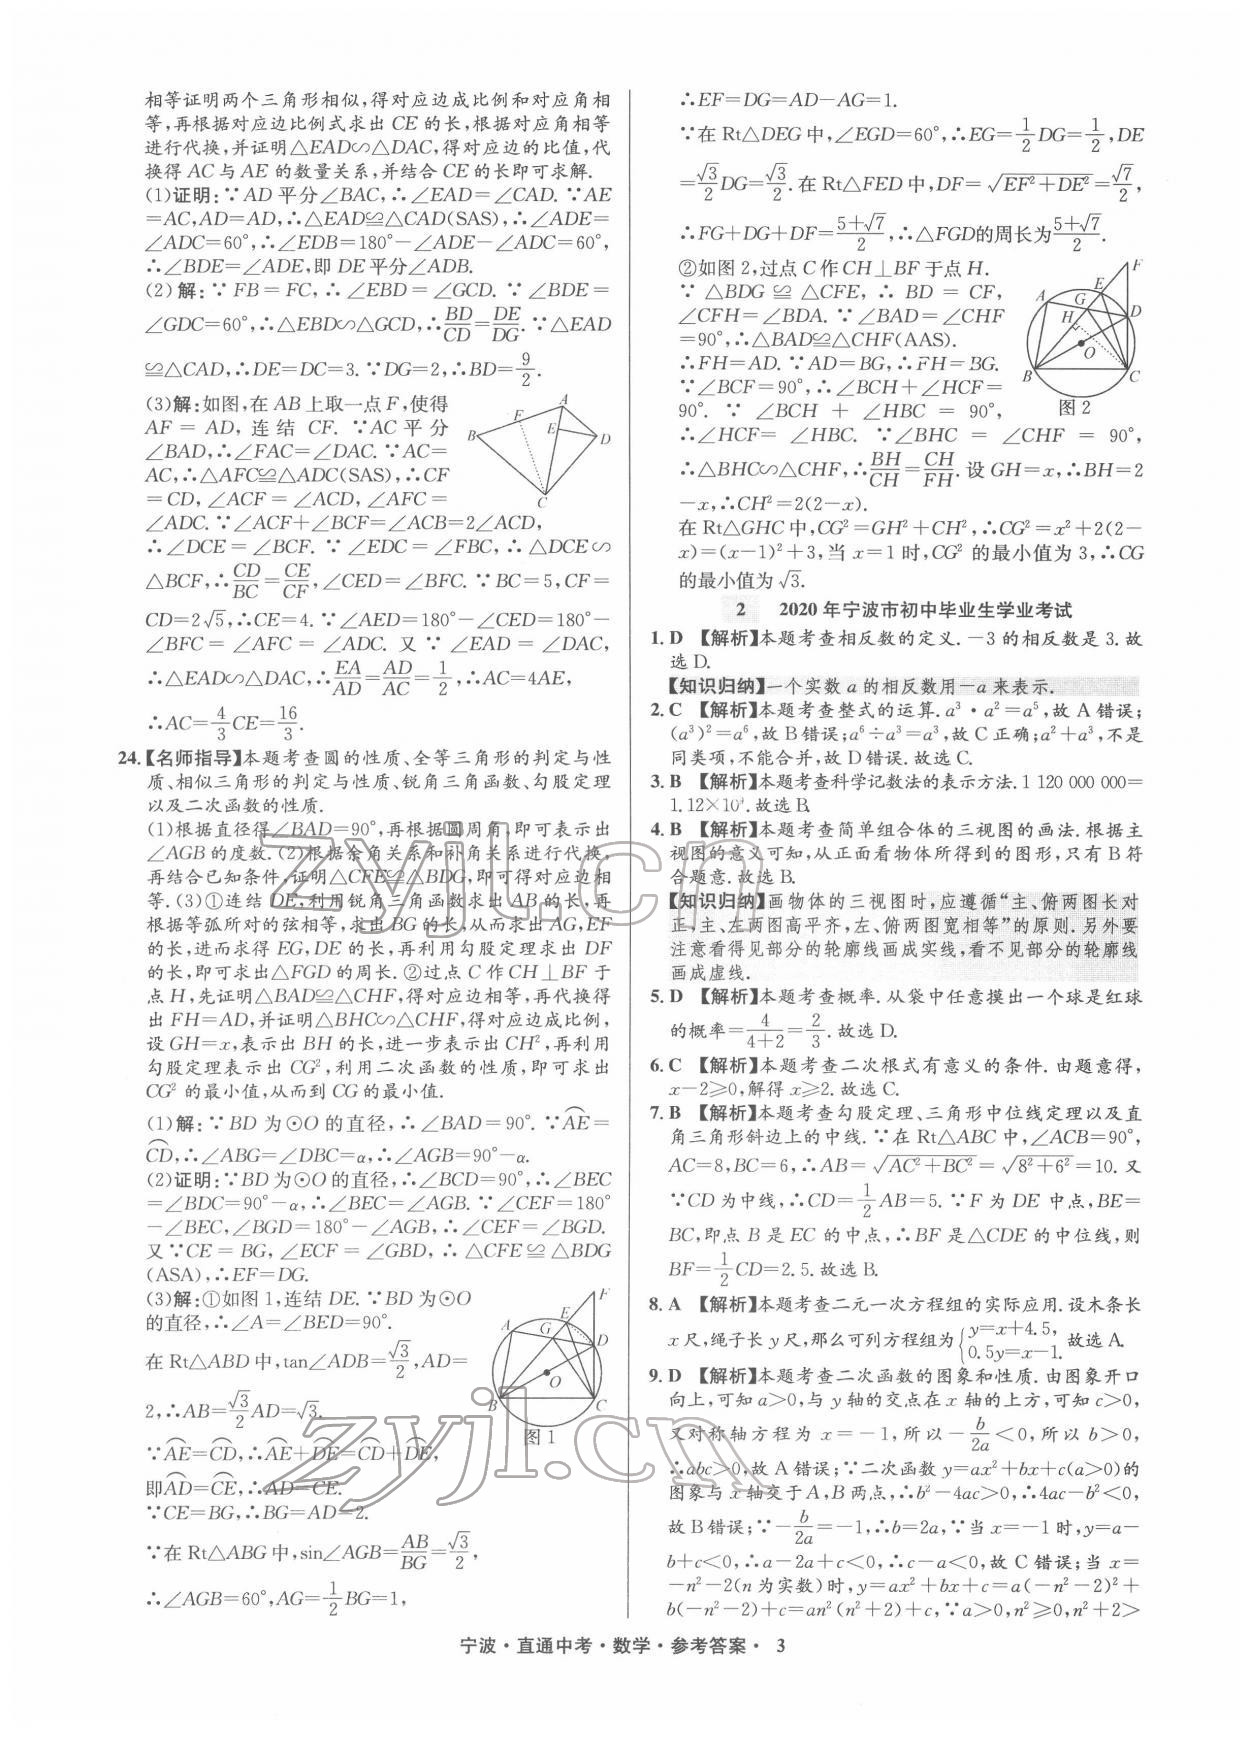 相等证明两个三角形相似,得对应边成比例和对应角相
等,再根据对应边比例式求出 CE 的长,根据对应角相等
进行代换,并证明△EAD∽△DAC,得对应边的比值,代
换得 AC 与 AE 的数量关系,并结合 CE 的长即可求解.
(1)证明:∵AD 平分∠BAC,∴∠EAD=∠CAD.∵AE
=AC,AD=AD,∴△EAD≌△CAD(SAS),∴∠ADE=
∠ADC=60°,∴∠EDB=180°-∠ADE-∠ADC=60°,
∴∠BDE=∠ADE,即 DE 平分∠ADB.
(2)解:∵FB=FC,∴∠EBD=∠GCD.∵∠BDE=
∠GDC=60°,∴△EBD∽△GCD,∴BD/CD=DE/DG.∵△EAD
≌△CAD,∴DE=DC=3.∵DG=2,∴BD=9/2.
(3)解:如图,在 AB 上取一点 F,使得
AF=AD,连结 CF.∵AC 平分
∠BAD,∴∠FAC=∠DAC.∵AC=
AC,∴△AFC≌△ADC(SAS),∴CF
=CD,∠ACF=∠ACD,∠AFC=
∠ADC.∵∠ACF+∠BCF=∠ACB=2∠ACD,
∴∠DCE=∠BCF.∵∠EDC=∠FBC,∴△DCE∽
△BCF,∴CD/BC=CE/CF,∠CED=∠BFC.∵BC=5,CF=
CD=2√5,∴CE=4.∵∠AED=180°-∠CED=180°-
∠BFC=∠AFC=∠ADC.又∵∠EAD=∠DAC,
∴△EAD∽△DAC,∴EA/AD=AD/AC=1/2,∴AC=4AE,
∴AC=4/3CE=16/3.
A
F
B
E
D
C
24.【名师指导】本题考查圆的性质、全等三角形的判定与性
质、相似三角形的判定与性质、锐角三角函数、勾股定理
以及二次函数的性质.
(1)根据直径得∠BAD=90°,再根据圆周角,即可表示出
∠AGB的度数.(2)根据余角关系和补角关系进行代换,
再结合已知条件,证明△CFE≌△BDG,即可得对应边相
等.(3)①连结 DE,利用锐角三角函数求出 AB 的长,再
根据等弧所对的弦相等,求出 BG 的长,从而求出 AG,EF
的长,进而求得 EG,DE 的长,再利用勾股定理求出 DF
的长,即可求出△FGD 的周长.②过点 C 作 CH⊥BF 于
点 H,先证明△BAD≌△CHF,得对应边相等,再代换得
出 FH=AD,并证明△BHC∽△CHF,得对应边成比例,
设 GH=x,表示出 BH 的长,进一步表示出 CH²,再利用
勾股定理表示出 CG²,利用二次函数的性质,即可求出
CG² 的最小值,从而得到 CG 的最小值.
(1)解:∵BD 为⊙O 的直径,∴∠BAD=90°.∵⌒AE=
⌒CD,∴∠ABG=∠DBC=α,∴∠AGB=90°-α.
(2)证明:∵BD为⊙O的直径,∴∠BCD=90°,∴∠BEC
=∠BDC=90°-α,∴∠BEC=∠AGB.∵∠CEF=180°
-∠BEC,∠BGD=180°-∠AGB,∴∠CEF=∠BGD.
又∵CE=BG,∠ECF=∠GBD,∴△CFE≌△BDG
(ASA),∴EF=DG.
(3)解:①如图1,连结 DE.∵BD 为⊙O
的直径,∴∠A=∠BED=90°.
在 Rt△ABD 中,tan∠ADB=√3/2,AD=
2,∴AB=√3/2AD=√3.
∵⌒AE=⌒CD,∴⌒AE+⌒DE=⌒CD+⌒DE,
即⌒AD=⌒CE,∴AD=CE.
∵CE=BG,∴BG=AD=2.
∵在 Rt△ABG 中,sin∠AGB=AB/BG=√3/2,
∴∠AGB=60°,AG=1/2BG=1,
F
E
A
G
D
O
B
C
图 1
∴EF=DG=AD-AG=1.
∵在 Rt△DEG 中,∠EGD=60°,∴EG=1/2DG=1/2,DE
=√3/2DG=√3/2.在 Rt△FED 中,DF=√(EF²+DE²)=√7/2,
∴FG+DG+DF=(5+√7)/2,∴△FGD的周长为(5+√7)/2.
②如图 2,过点 C 作 CH⊥BF 于点 H.
∵△BDG≌△CFE,∴BD=CF,
∠CFH=∠BDA.∵∠BAD=∠CHF
=90°,∴△BAD≌△CHF(AAS).
∴FH=AD.∵AD=BG,∴FH=BG.
∵∠BCF=90°,∴∠BCH+∠HCF=
90°.∵∠BCH+∠HBC=90°,
∴∠HCF=∠HBC.∵∠BHC=∠CHF=90°,
∴△BHC∽△CHF,∴BH/CH=CH/FH.设 GH=x,∴BH=2
-x,∴CH²=2(2-x).
在 Rt△GHC 中,CG²=GH²+CH²,∴CG²=x²+2(2-
x)=(x-1)²+3,当 x=1 时,CG² 的最小值为 3,∴CG
的最小值为√3.
F
E
A
G
H
D
O
B
C
图 2
2 2020 年宁波市初中毕业生学业考试
1. D 【解析】本题考查相反数的定义.-3 的相反数是 3.故
选 D.
【知识归纳】一个实数 a 的相反数用-a 来表示.
2. C 【解析】本题考查整式的运算.a³·a²=a⁵,故 A 错误;
(a³)²=a⁶,故 B 错误;a⁶÷a³=a³,故 C 正确;a²+a³,不是
同类项,不能合并,故 D 错误.故选 C.
3. B 【解析】本题考查科学记数法的表示方法.1 120 000 000=
1.12×10⁹.故选 B.
4. B 【解析】本题考查简单组合体的三视图的画法.根据主
视图的意义可知,从正面看物体所得到的图形,只有 B 符
合题意.故选 B.
【知识归纳】画物体的三视图时,应遵循“主、俯两图长对
正,主、左两图高平齐,左、俯两图宽相等”的原则.另外要
注意看得见部分的轮廓线画成实线,看不见部分的轮廓线
画成虚线.
5. D 【解析】本题考查概率.从袋中任意摸出一个球是红球
的概率=4/(4+2)=2/3.故选 D.
6. C 【解析】本题考查二次根式有意义的条件.由题意得,
x-2≥0,解得 x≥2.故选 C.
7. B 【解析】本题考查勾股定理、三角形中位线定理以及直
角三角形斜边上的中线.∵在 Rt△ABC 中,∠ACB=90°,
AC=8,BC=6,∴AB=√(AC²+BC²)=√(8²+6²)=10.又
∵CD 为中线,∴CD=1/2AB=5.∵F 为 DE 中点,BE=
BC,即点 B 是 EC 的中点,∴BF 是△CDE 的中位线,则
BF=1/2CD=2.5.故选 B.
8. A 【解析】本题考查二元一次方程组的实际应用.设木条长
x 尺,绳子长 y 尺,那么可列方程组为{y=x+4.5, 0.5y=x-1.故选 A.
9. D 【解析】本题考查二次函数的图象和性质.由图象开口
向上,可知 a>0,与 y 轴的交点在 x 轴的上方,可知 c>0,
又对称轴方程为 x=-1,所以-b/2a<0,所以 b>0,
∴abc>0,故 A 错误;∵二次函数 y=ax²+bx+c(a>0)的
图象与 x 轴交于 A,B 两点,∴b²-4ac>0,∴4ac-b²<0,
故 B 错误;∵-b/2a=-1,∴b=2a,∵当 x=-1 时,y=a-
b+c<0,∴a-2a+c<0,∴c-a<0,故 C 错误;当 x=
-n²-2(n 为实数)时,y=ax²+bx+c=a(-n²-2)²+
b(-n²-2)+c=an²(n²+2)+c,∵a>0,n²≥0,n²+2>
宁波·直通中考·数学·参考答案· 3
zyjl.cn
zyjl.cn